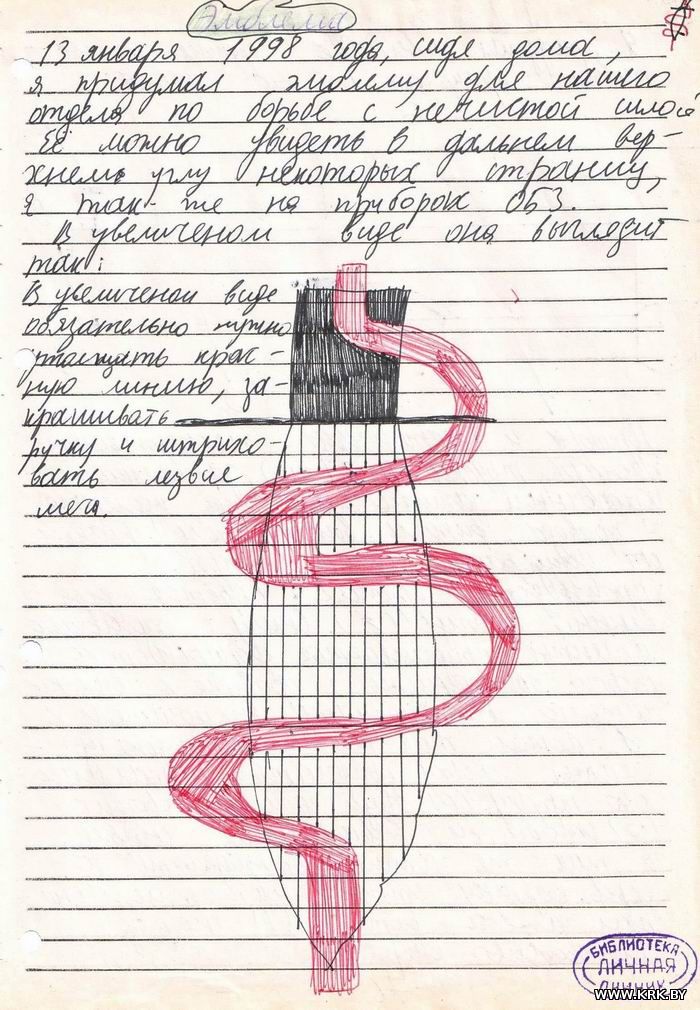 Эмблема
13 января 1998 года, сидя дома,
я придумал эмблему для нашего
отдела по борьбе с нечистой силой
Её можно увидеть в дальнем вер-
хнем углу некоторых страниц,
а так-же на приборах ОБЗ.
В увеличеном виде она выглядит
так:
В увеличеном виде
обязательно нужно
утолщать крас-
ную линию, за-
крашивать
ручку и штрихо-
вать лезвие
меча.
БИБЛИОТЕКА
ЛИЧНАЯ
WWW.KRK.BY